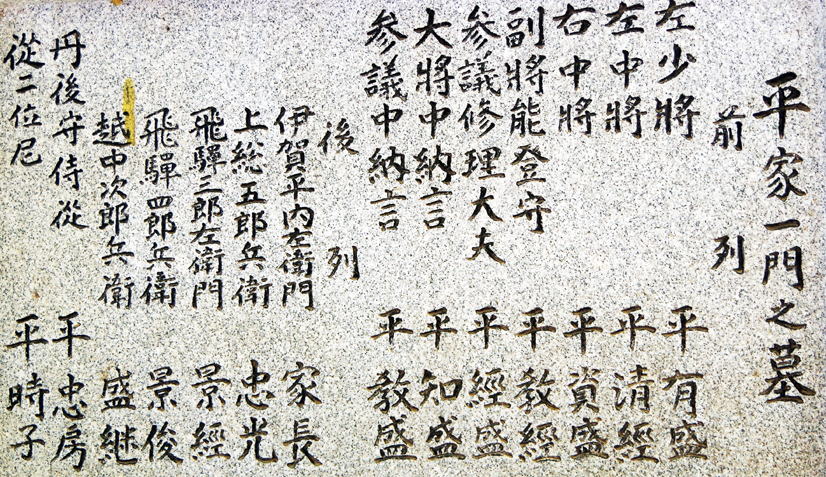 平家一門之墓
前列
左少將 平有盛
左中將 平清經
右中將 平資盛
副將能登守 平教經
参議修理大夫 平經盛
大將中納言 平知盛
参議中納言 平教盛
後列
伊賀平内左衛門 家長
上総五郎兵衛 忠光
飛騨三郎左衛門 景經
飛騨四郎兵衛 景俊
越中次郎兵衛 盛継
丹後守侍從 平忠房
從二位尼 平時子